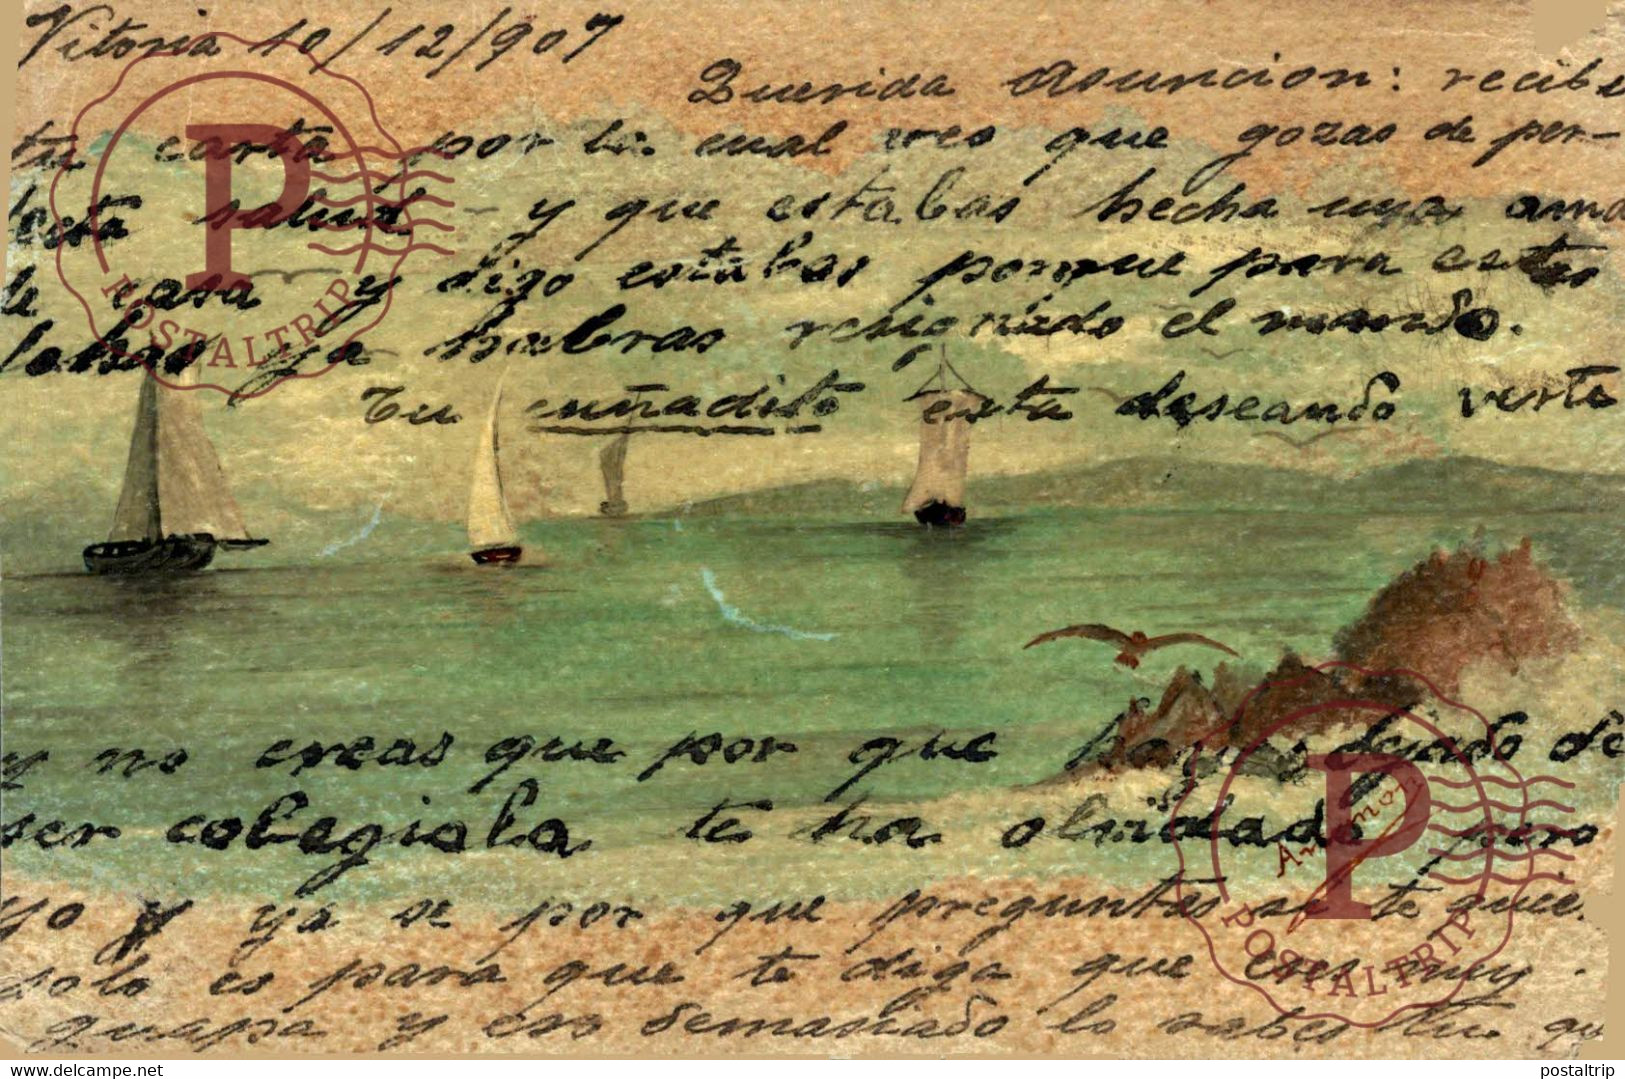 Vitoria 10/12/907
Querida Asuncion: recibi
tu carta por la cual veo que gozas de per-
fecta salud - y que estabas hecha una ama
de casa y digo estabas porque para estas
ya habras resignado el mando.
Tu cuñadito esta deseando verte
y no creas que por que hayas dejado de
ser colegiala te ha olvidado pero
yo y ya se por que preguntas si te quie.
solo es para que te diga que eres muy
guapa y eso demasiado lo sabes tu qu
POSTALTRIP
P
POSTALTRIP
P
www.delcampe.net
postaltrip